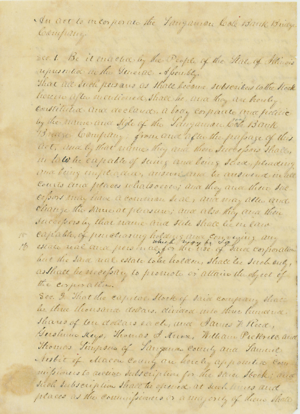 An act to incorporate the Sangamon Oil Back Bridge
Company.
Sec 1. Be it enacted by the People of the State of Illinois
represented in the General Assembly
That all such persons as shall become subscribers to the Stock
herein after mentioned shall be and they are hereby
constituted and declared a body corporate and politic
by the name and style of the Sangamon
Company, from and after the passage of this
Act, and by that name they and their successors shall
be capable of suing and being sued, pleading
and being impleaded, answering and being answered in all
courts and places whatsoever and they and their suc
cessors may have a common seal, and may alter and
change the same at pleasure; and also they and their
successors by that name and style shall be in law
capable of purchasing holding and conveying any
estate real and personal for the use of said corporation
the said real estate to be holden, shall be such only
as shall be necessary to promote or attain the object of
the corporation.
Sec 2. That the capital stock of said company shall
be three thousand dollars divided into three hundred
shares of ten dollars each, and James
William
Thomas of Sangamon County and Samuel
of Macon County are hereby appointed com
missioners to receive subscription for the said Stock and
such subscription shall be opened at such times and
places as the commissioners or a majority of them shall